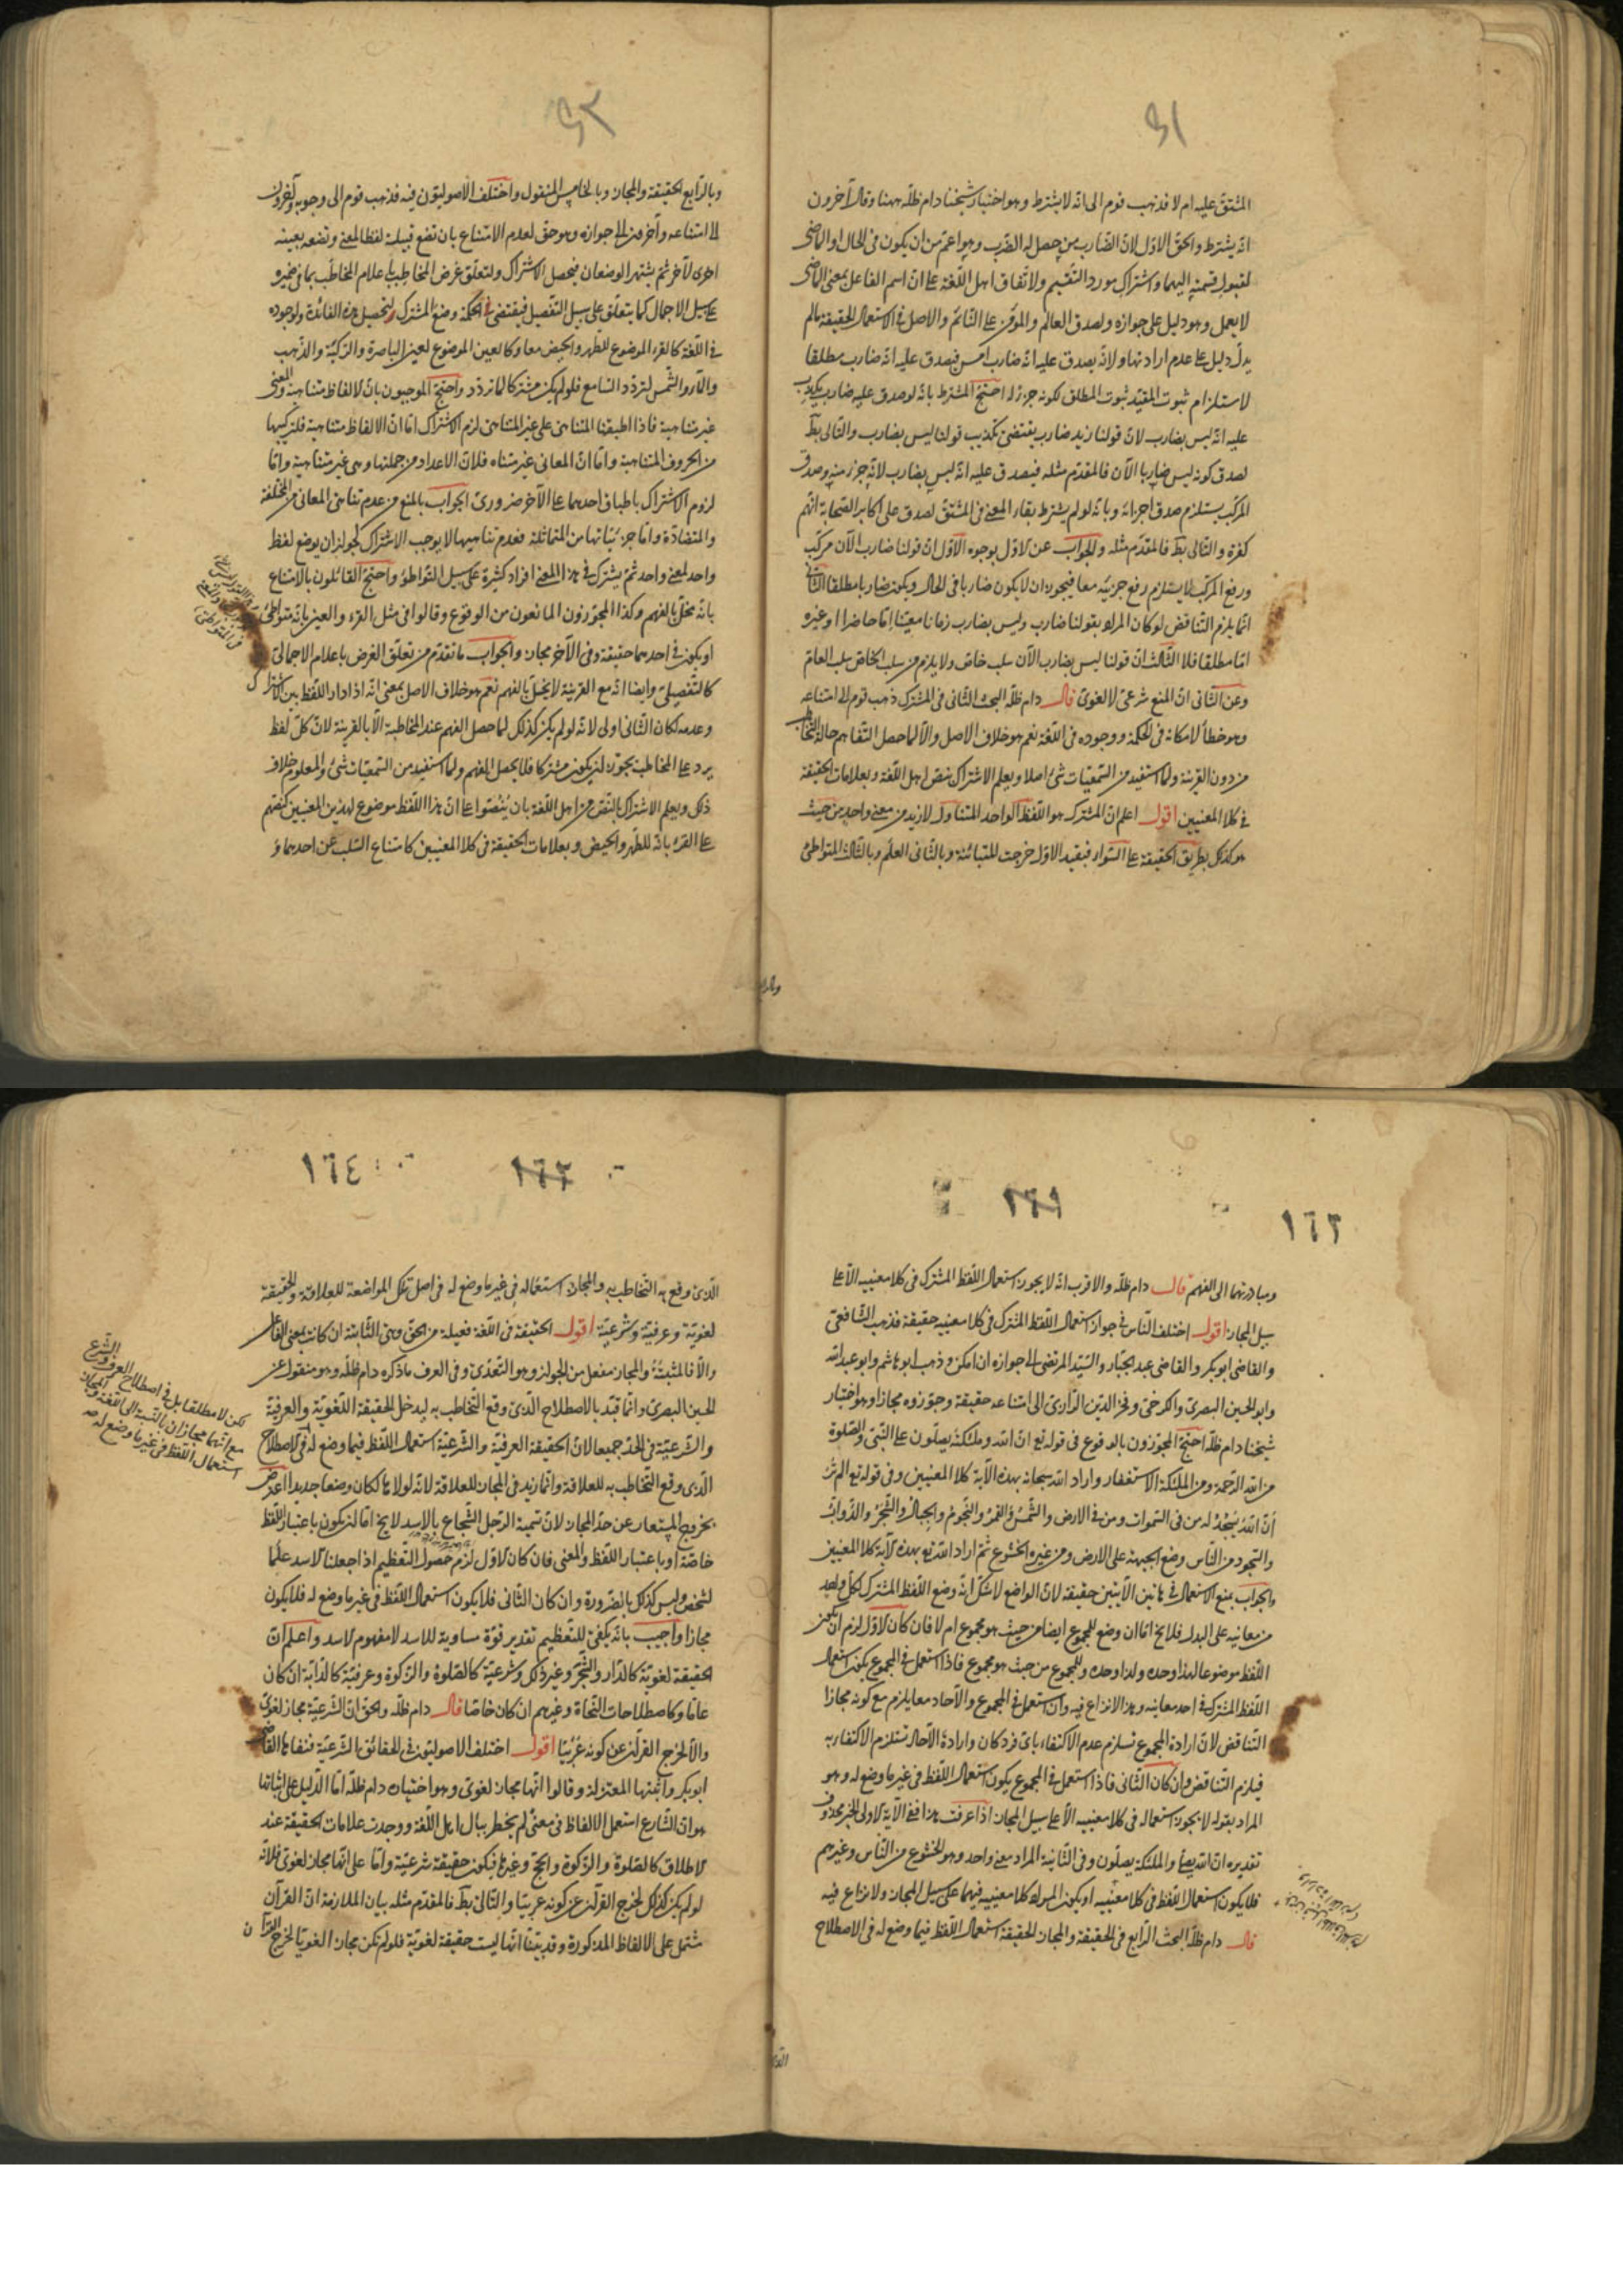 ٤١
المشتق عليه ام لا فذهب قوم الى انه لا يشترط وهو اختيار شيخنا دام ظله ههنا وقال آخرون
انه يشترط والحق الاول لان الضارب من حصل له الضرب وهو اعم من ان يكون فى الحال او الماضى
لقبوله قسمته اليهما واشتراك مورد التقسيم ولاتفاق اهل اللغة على ان اسم الفاعل بمعنى الماضى
لا يعمل وهو دليل على جوازه ولصدق العالم والمؤمن على النائم والاصل فى الاستعمال الحقيقة ما لم
يدل دليل على عدم ارادتها ولانه يصدق عليه انه ضارب امس فيصدق عليه انه ضارب مطلقا
لاستلزام ثبوت المقيد ثبوت المطلق لكونه جزء له احتج المشترط بانه لو صدق عليه ضارب
عليه انه ليس بضارب لان قولنا زيد ضارب يقتضى تكذيب قولنا ليس بضارب والتالى بط
لصدق كونه ليس ضاربا الآن فالمقدم مثله فيصدق عليه انه ليس بضارب لانه جزء منه وصدق
المركب يستلزم صدق اجزائه وبانه لو لم يشترط بقاء المعنى فى المشتق لصدق على اكابر الصحابة انهم
كفرة والتالى بط فالمقدم مثله والجواب عن الاول بوجوه الاول ان قولنا ضارب الآن مركب
ورفع المركب لا يستلزم رفع جزئيه معا فيجوز ان لا يكون ضاربا فى الحال ويكون ضاربا مطلقا الثانى
انما يلزم التناقض لو كان المراد بقولنا ضارب وليس بضارب زمانا معينا اما حاضرا او غيره
اما مطلقا فلا الثالث ان قولنا ليس بضارب الآن سلب خاص ولا يلزم من سلب الخاص سلب العام
وعن الثانى ان المنع شرعى لا لغوى قال دام ظله البحث الثانى فى المشترك ذهب قوم الى امتناعه
وهو خطأ لامكانه فى الحكمة ووجوده فى اللغة نعم هو خلاف الاصل والا لما حصل التفاهم حالة التخاطب
من دون القرينة ولما استفيد من السمعيات شئ اصلا ويعلم الاشتراك بنص اهل اللغة وبعلامات الحقيقة
فى كلا المعنيين اقول اعلم ان المشترك هو اللفظ الواحد المتناول لازيد من معنى واحد من حيث
هو كذلك بطريق الحقيقة على السواء فبقيد الاول خرجت المتباينة وبالثانى العلم وبالثالث المتواطئ
وبالرابع
٤٢
وبالرابع الحقيقة والمجاز وبالخامس المنقول واختلف الاصوليون فيه فذهب قوم الى وجوبه وآخرون
الى امتناعه وآخرون الى جوازه وهو حق لعدم الامتناع بان تضع قبيلة لفظا لمعنى وتضعه بعينه
اخرى لآخر ثم يشتهر الوضعان فيحصل الاشتراك ولتعلق غرض المخاطب باعلام المخاطب بما فى ضميره
على سبيل الاجمال كما يتعلق على سبيل التفصيل فيقتضى فى الحكمة وضع المشترك لتحصيل هذه الفائدة ولوجوده
فى اللغة كالقرء الموضوع للطهر والحيض معا وكالعين الموضوع لعين الباصرة والركبة والذهب
والنار والشمس لتردد السامع فلو لم يكن مشتركا لما تردد واحتج الموجبون بان الالفاظ متناهية والمعنى
غير متناهية فاذا اطبقنا المتناهى على غير المتناهى لزم الاشتراك اما ان الالفاظ متناهية فلتركبها
من الحروف المتناهية واما ان المعانى غير متناه فلان الاعداد من جملتها وهى غير متناهية واما
لزوم الاشتراك باطباق احدهما على الآخر ضرورى الجواب بالمنع من عدم تناهى المعانى المختلفة
والمتضادة واما جزئياتها من المتماثلة فعدم تناهيها لا يوجب الاشتراك لجواز ان يوضع لفظ
واحد لمعنى واحد ثم يشترك فى هذا المعنى افراد كثيرة على سبيل التواطؤ واحتج القائلون بالامتناع
بانه مخل بالفهم وكذا المجوزون المانعون من الوقوع وقالوا فى مثل القرء والعين بانه متواطئ
او يكون فى احدهما حقيقة وفى الآخر مجاز والجواب ما تقدم من تعلق الغرض باعلام الاجمالى
كالتفصيلى وايضا انه مع القرينة لا يخل بالفهم نعم هو خلاف الاصل بمعنى انه اذا دار اللفظ بين الاشتراك
وعدمه لكان الثانى اولى لانه لو لم يكن كذلك لما حصل الفهم عند المخاطبة الا بالقرينة لان كل لفظ
يرد على المخاطب يجوز ان يكون مشتركا فلا يحصل الفهم ولما استفيد من السمعيات شئ والمعلوم خلاف
ذلك ويعلم الاشتراك بالنص من اهل اللغة بان ينصوا على ان هذا اللفظ موضوع لهذين المعنيين كنصهم
على القرء بانه للطهر والحيض وبعلامات الحقيقة فى كلا المعنيين كامتناع السلب عن احدهما و
١٦١
١٦٢
ومبادرتهما الى الفهم قال دام ظله والاقرب انه لا يجوز استعمال اللفظ المشترك فى كلا معنييه الا على
سبيل المجاز اقول اختلف الناس فى جواز استعمال اللفظ المشترك فى كلا معنييه حقيقة فذهب الشافعى
والقاضى ابو بكر والقاضى عبد الجبار والسيد المرتضى الى جوازه ان امكن وذهب ابو هاشم وابو عبد الله
وابو الحسين البصرى والكرخى وفخر الدين الرازى الى امتناعه حقيقة وجوزوه مجازا وهو اختيار
شيخنا دام ظله احتج المجوزون بالوقوع فى قوله تع ان الله وملئكته يصلون على النبى والصلوة
من الله الرحمة ومن الملئكة الاستغفار واراد الله سبحانه بهذه الآية كلا المعنيين وفى قوله تع الم تر
ان الله يسجد له من فى السموات ومن فى الارض والشمس والقمر والنجوم والجبال والشجر والدواب
والسجود من الناس وضع الجبهة على الارض ومن غيره الخشوع ثم اراد الله تع بهذه الآية كلا المعنيين
والجواب بمنع الاستعمال فى هاتين الآيتين حقيقة لان الواضع لا شك انه وضع اللفظ المشترك لكل واحد
من معانيه على البدل فلا يخ اما ان وضع للمجموع ايضا من حيث هو مجموع ام لا فان كان الاول لزم ان يكون
اللفظ موضوعا لهذا وحده ولذا وحده وللمجموع من حيث هو مجموع فاذا استعمل فى المجموع يكون استعمال
اللفظ المشترك فى احد معانيه وهذا لا نزاع فيه وان استعمل فى المجموع والآحاد معا يلزم مع كونه مجازا
التناقض لان ارادة المجموع تستلزم عدم الاكتفاء باى فرد كان وارادة الآحاد تستلزم الاكتفاء به
فيلزم التناقض وان كان الثانى فاذا استعمل فى المجموع يكون استعمال اللفظ فى غير ما وضع له وهو
المراد بقوله لا يجوز استعماله فى كلا معنييه الا على سبيل المجاز اذا عرفت هذا ففى الآية الاولى الخبر محذوف
تقديره ان الله يصلى والملئكة يصلون وفى الثانية المراد معنى واحد وهو الخشوع من الناس وغيرهم
فلا يكون استعمال اللفظ فى كلا معنييه او يكون المراد كلا معنييه فيهما على سبيل المجاز ولا نزاع فيه
قال دام ظله البحث الرابع فى الحقيقة والمجاز الحقيقة استعمال اللفظ فيما وضع له فى الاصطلاح
١٦٣
١٦٤
الذى وقع به التخاطب به والمجاز استعماله فى غير ما وضع له فى اصل تلك المواضعة للعلاقة والحقيقة
لغوية وعرفية وشرعية اقول الحقيقة فى اللغة فعيلة من الحق وهى الثابتة ان كانت بمعنى الفاعل
والا فالمثبتة والمجاز مفعل من الجواز وهو التعدى وفى العرف ما ذكره دام ظله وهو منقول عن
الحسين البصرى وانما قيد بالاصطلاح الذى وقع التخاطب به ليدخل الحقيقة اللغوية والعرفية
والشرعية فى الحد جميعا لان الحقيقة العرفية والشرعية استعمال اللفظ فيما وضع له فى الاصطلاح
الذى وقع التخاطب به للعلاقة وانما زيد فى المجاز للعلاقة لانه لولاها لكان وضعا جديدا اعترض
بخروج المستعار عن حد المجاز لان تسمية الرجل الشجاع بالاسد لا يخ اما ان يكون باعتبار اللفظ
خاصة او باعتبار اللفظ والمعنى فان كان الاول لزم حصول التعظيم اذا جعلنا الاسد علما
لشخص وليس كذلك بالضرورة وان كان الثانى فلا يكون استعمال اللفظ فى غير ما وضع له فلا يكون
مجازا واجيب بانه يكفى للتعظيم تقدير قوة مساوية للاسد لا مفهوم الاسد واعلم ان
الحقيقة لغوية كالدار والشجر وغير ذلك وشرعية كالصلوة والزكوة وعرفية كالدابة ان كان
عاما وكاصطلاحات النحاة وغيرهم ان كان خاصا قال دام ظله والحق ان الشرعية مجاز لغوى
والا لخرج القرآن عن كونه عربيا اقول اختلف الاصوليون فى الحقائق الشرعية فنفاها القاضى
ابو بكر واثبتها المعتزلة وقالوا انها مجاز لغوى وهو اختيار دام ظله اما الدليل على اثباتها
هو ان الشارع استعمل الالفاظ فى معنى لم يخطر ببال اهل اللغة ووجدت علامات الحقيقة عند
الاطلاق كالصلوة والزكوة والحج وغيرها فيكون حقيقة شرعية واما على انها مجاز لغوى فلانه
لو لم يكن كذلك لخرج القرآن عن كونه عربيا والتالى بط فالمقدم مثله بيان الملازمة ان القرآن
مشتمل على الالفاظ المذكورة وقد بينا انها ليست حقيقة لغوية فلو لم تكن مجازا لغويا لخرج القرآن
لكن لا مطلقا بل فى اصطلاح العرف والشرع
مع انهما مجازان بالنسبة الى اللغة والمجاز
استعمال اللفظ فى غير ما وضع له صح